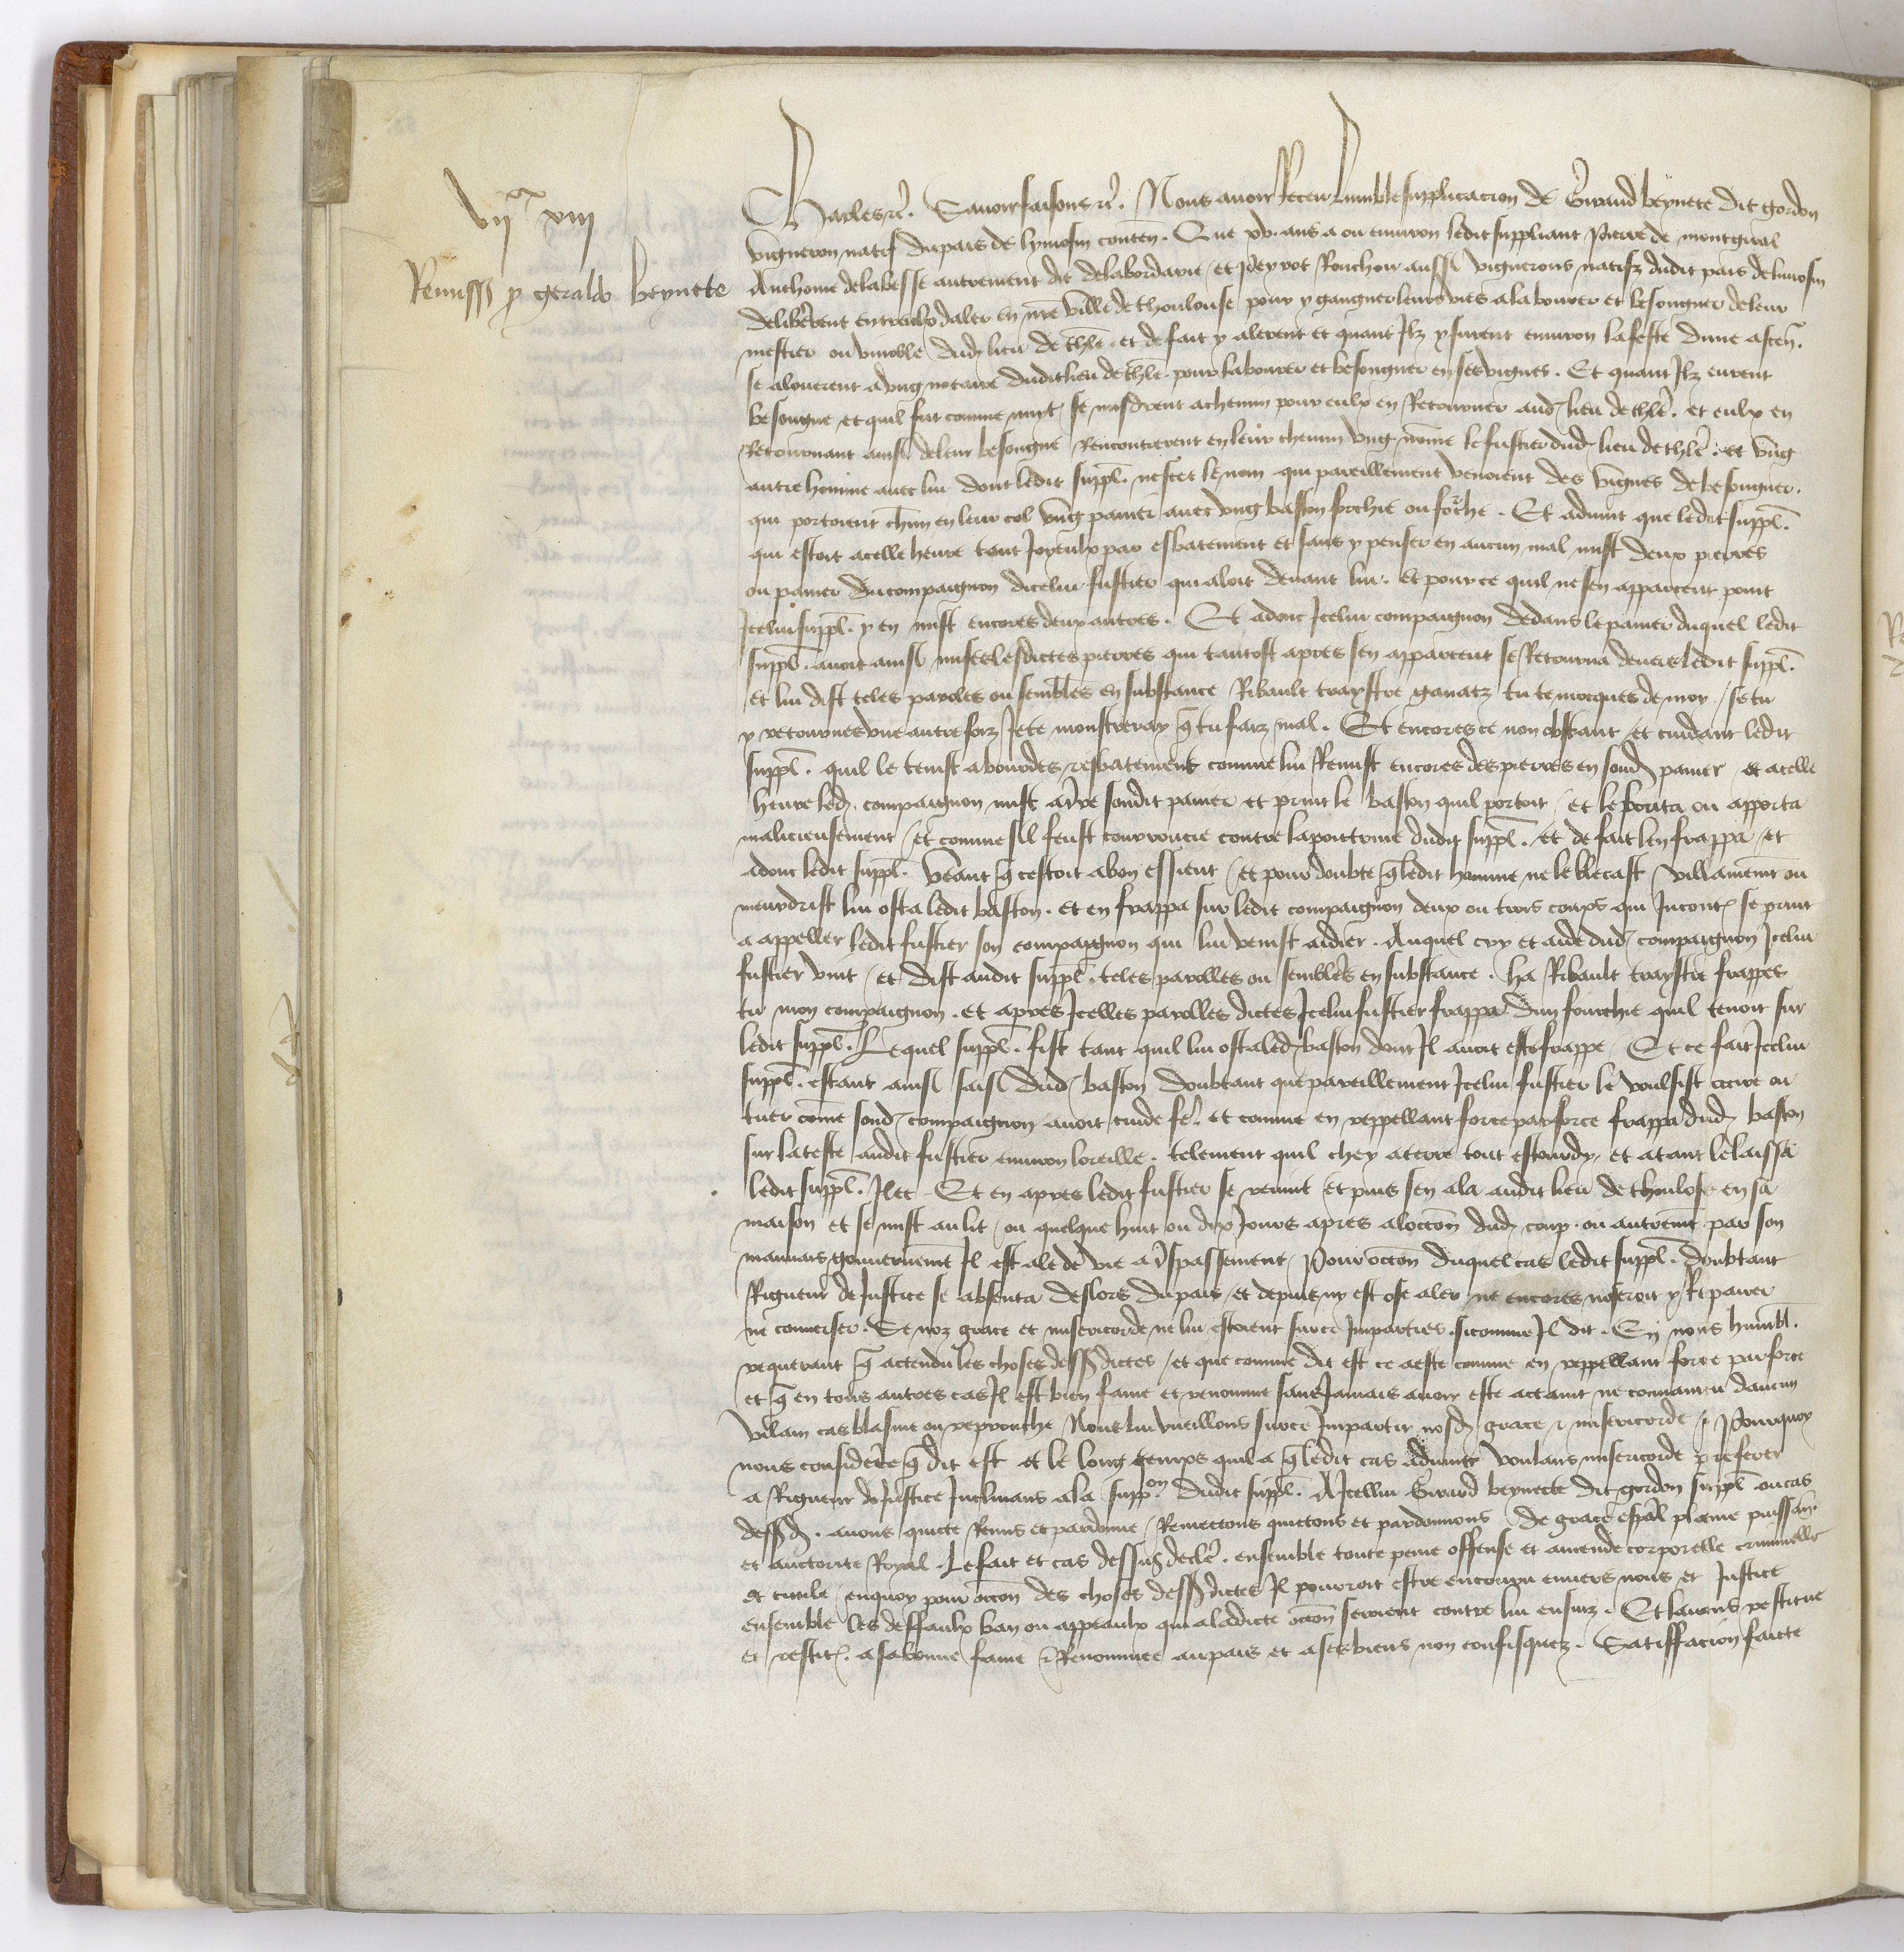 vii^xx xiii
Remiss p geraldo beynete
Charles etc. Savoir faisons etc. Nous avoir receu humble supplicacion de Giraud beynete dit gordon
vigneron natif du pais de lymosin conten. Que xv. ans a ou environ ledit suppliant Pierre de montgiral
Anthoine delabesse autrement dit delabordarie et Ronchon aussi vignerons natifz dudit pais delimosin
deliberent entreulx daler en nre ville de thoulouse pour y gangner leurs vies alabourer et besongner de leur
mestier ou vinoble dud lieu de thle. et de fait y alerent et quant Ilz y furent environ lafeste dune ascen.
se alouerent a ung notaire dudit lieu de thle. pour labourer et besongner en ses vignes. Et quant Ilz eurent
besongne et quil fut comme nuyt se misdrent achemin pour eulx en Retourner aud lieu de thle. et eulx en
Retournant ainsi deleur besongne Rencontrerent en leur chemin ung nome le fustier dud lieu de thle. et ung
autre homme avec lui dont ledit suppl. nescet le nom qui pareillement venoient des vignes de besongner.
qui portoient chun en leur col ung panier avec ung baston forchie ou forche. Et advint que ledit suppl.
qui estoit acelle heure tout Joyeulx par esbatement et sans y penser en aucun mal mist deux pierres
ou panier du compaignon dicelui fustier qui aloit devant lui. et pource quil ne sen apparceut point
Icelui suppl. y en mist encores deux autres. Et adonc Icelui compaignon dedans le panier duquel ledit
suppl. avoit ainsi mises lesdictes pierres qui tantost apres sen apparceut se Retourna devers ledit suppl.
et lui dist teles paroles ou sembles en substance Ribault traystre ganatz tu te mocques de moy / se tu
y retournes une autre foiz Je te monstreray q tu faiz mal. Et encores ce non obstant et cuidant ledit
suppl. quil le tenist abourdes esbatement comme lui Remist encores des pierres en sond panier et acelle
heure led. compaignon mist atre sondit panier et print le baston quil portoit / et le bouta ou apporta
malicieusement et comme sil feust courroucie contre lapoittrine dudit suppl. / et de fait len frappa et
adonc ledit suppl. Veant q cestoit abon essient / et pour doubte q ledit homme ne le blecast villainemt ou
meurdrist lui osta ledit baston. et en frappa sur ledit compaignon deux ou trois coups qui Incont se print
a appeller ledit fustier son compaignon qui lui venist aidier. Auquel cry et aide dud compaignon Icelui
fustier vint / et dist audit suppl. teles parolles ou sembles en substance. ha Ribault traystre frappes
tu mon compaignon. et apres Icelles parolles dictes Icelui fustier frappa dun fourchie quil tenoit sur
ledit suppl. Lequel suppl. fist tant quil lui osta led baston dont Il avoit este frappe / Et ce fait Icelui
suppl. estant ainsi saisi dud baston doubtant que pareillement Icelui fustier le voulsist occire ou
tuer come sond compaignon avoit cuide fe. et comme en reppellant force par force frappa dud baston
sur lateste audit fustier environ loreille. telement quil chey aterre tout estourdy. et atant le laissa
ledit suppl. Ilec Et en apres ledit fustier se revint et puis sen ala audit lieu de thoulose en sa
maison et se mist au lit / ou quelque huit ou dix Jours apres aloccon dud coup. ou autremt par son
mauvais gouvernemt Il est ale de vie a trspassement / Pour occon duquel cas ledit suppl. doubtant
Rigueur de Justice se absenta deslors du pais et depuis ny est ose aler ne encores noseroit y Repairer
ne converser. Se noz grace et misericorde ne lui estoient sur ce Imparties. sicomme Il dit. En nous humbl.
requerant q actendu les choses dessusdictes / et que comme dit est ce a este comme en reppellant force par force
et q en tous autres cas Il est bien fame et renomme sans Jamais avoir este actaint ne convaincu daucun
villain cas blasme ou reprouche Nous lui vueillons sur ce Impartir nosd grace et misericorde Pourquoy
nous considere q dit est et le long temps quil a q ledit cas advint voulans misericorde preferer
a Rigueur de Justice Inclinans ala suppon dudit suppl. A Icellui Girard beynette dit gordon suppl. ou cas
dessd. avons quicte Remis et pardonne / Remettons quittons et pardonnons De grace espal plaine puissan.
et auctorite Royal. Le fait et cas dessus decle. ensemble toute peine offense et amende corporelle criminelle
et civile enquoy pour occon des choses dessdictes Il pourroit estre encouru envers nous et Justice
ensemble les deffaulx ban ou appeaulx qui aladicte occon seroient contre lui ensuiz. Et lavons restitue
et restit. asabonne fame et Renommee au pais et a ses biens non confisquez. Satiffacion faicte